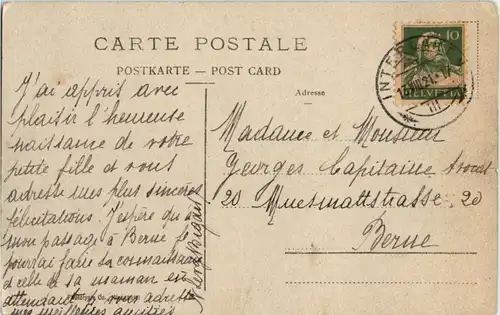 CARTE POSTALE
POSTKARTE — POST CARD
Adresse
10
HELVETIA
INTER
III
J'ai appris avec
plaisir l'heureuse
naissance de votre
petite fille et vous
adresse mes plus sincères
félicitations. J'espère qu'à
mon passage à Berne je
pourrai faire sa connaissance
et celle de sa maman en
attendant je vous adresse
mes meilleures amitiés
Madame et Monsieur
Georges Capitaine
20 Muesmattstrasse 20
Berne